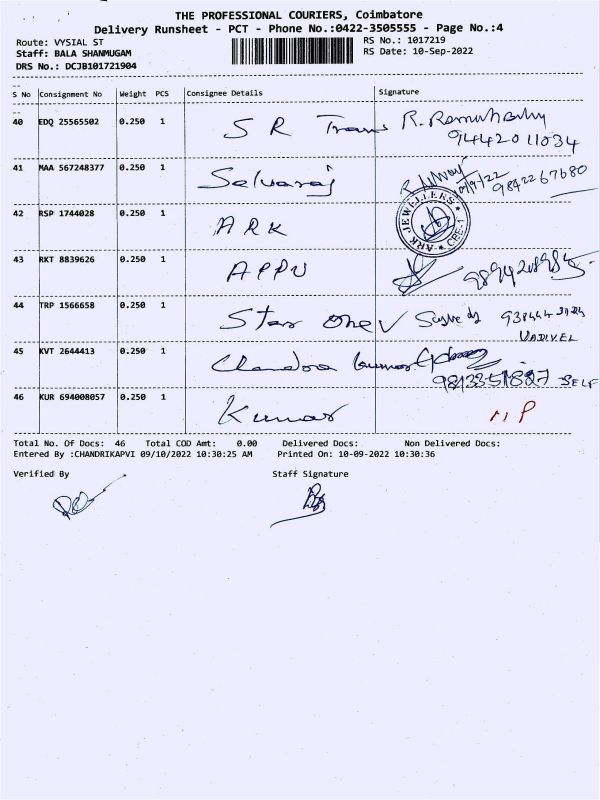 THE PROFESSIONAL COURIERS, Coimbatore
Delivery Runsheet - PCT - Phone No.:0422-3505555 - Page No.:4
Route: VYSIAL ST
RS No.: 1017219
Staff: BALA SHANMUGAM
RS Date: 10-Sep-2022
DRS No.: DCJB101721904
S No Consignment No Weight PCS Consignee Details Signature
40 EDQ 25565502 0.250 1 S R Trans R.
9442011034
41 MAA 567248377 0.250 1 Selvaraj
9842267680
42 RSP 1744028 0.250 1 ARK
ARK JEWELLERS * CBE-1 *
43 RKT 8839626 0.250 1 APPU
44 TRP 1566658 0.250 1 Star One V
VADIVEL
45 KVT 2644413 0.250 1 Chandra kumar
SELF
46 KUR 694008057 0.250 1 Kumar
Total No. Of Docs: 46 Total COD Amt: 0.00 Delivered Docs: Non Delivered Docs:
Entered By :CHANDRIKAPVI 09/10/2022 10:30:25 AM Printed On: 10-09-2022 10:30:36
Verified By Staff Signature